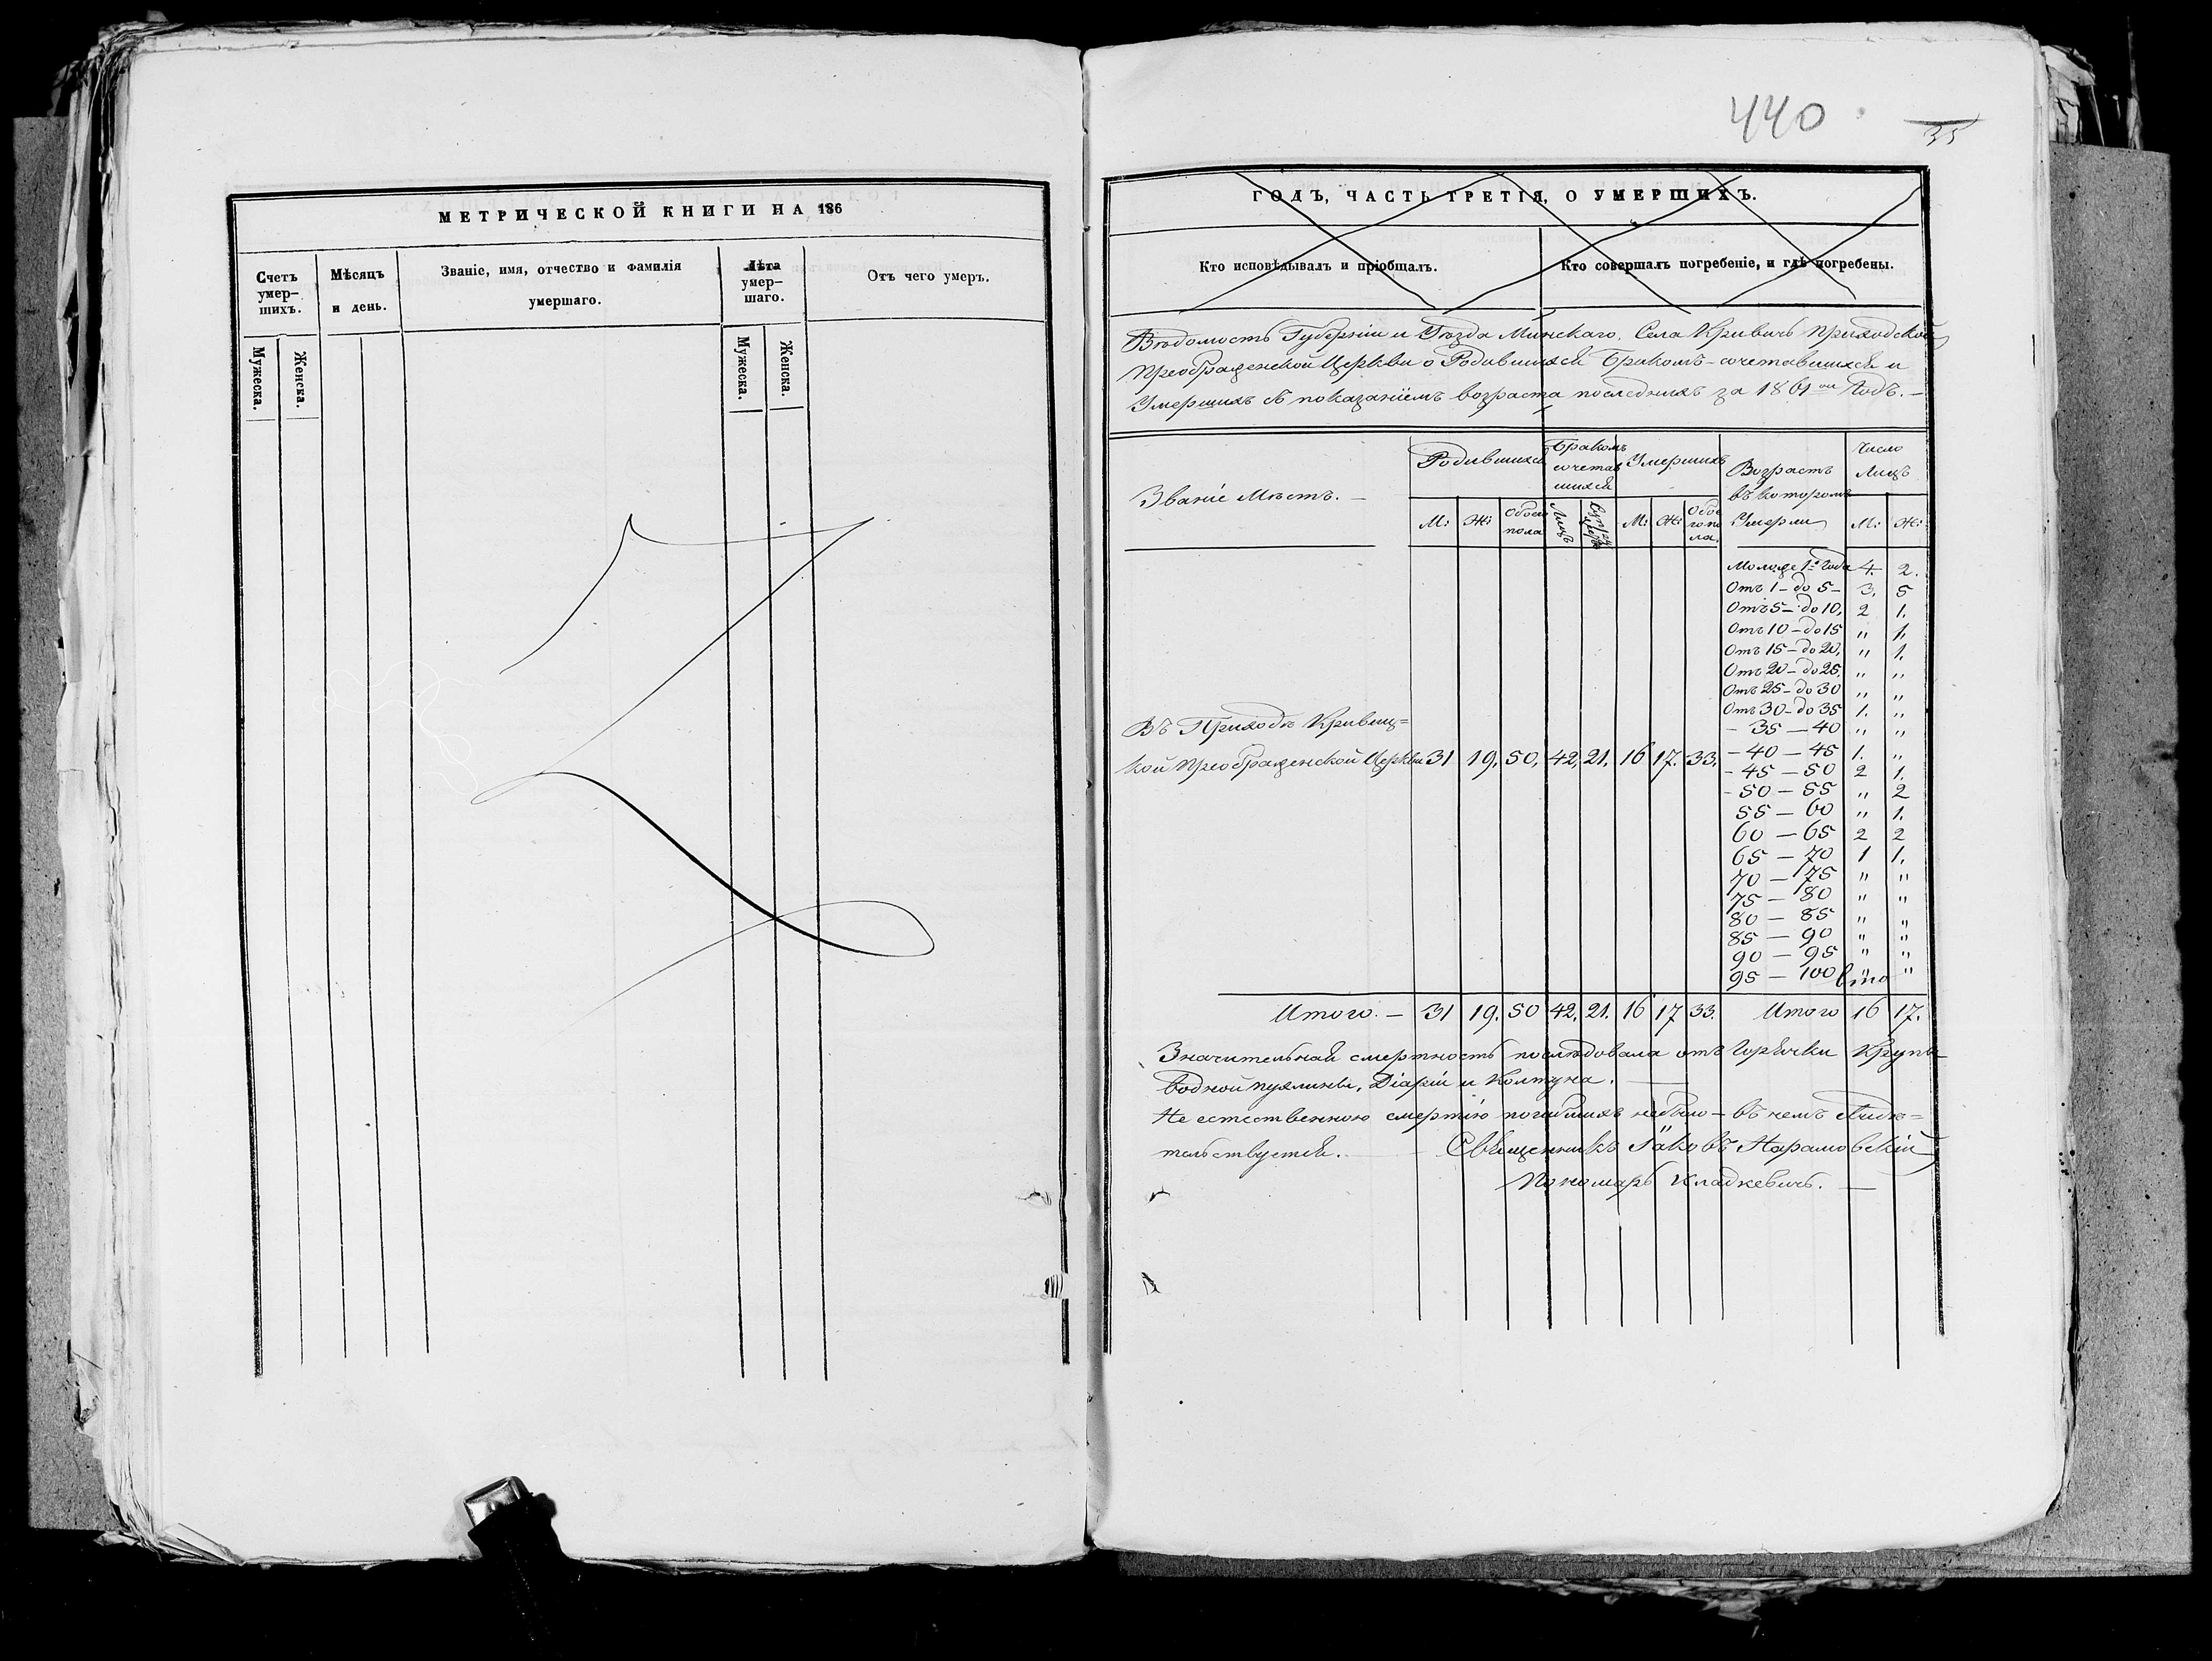 МЕТРИЧЕСКОЙ КНИГИ НА 186
Счетъ умер-
шихъ.
Мѣсяцъ
и день.
Званіе, имя, отчество и фамилія
умершаго.
Лѣта
умер-
шаго.
Отъ чего умеръ.
Мужеска.
Женска.
Мужеска.
Женска.
440
35
ГОДЪ, ЧАСТЬ ТРЕТІЯ, О УМЕРШИХЪ.
Кто исповѣдывалъ и пріобщалъ.
Кто совершалъ погребеніе, и гдѣ погребены.
Вѣдомость Губерніи и Уѣзда Минскаго, Села Кривичь Приходской
Преображенской Церкви о Родившихся Бракомъ-сочетавшихся и
Умершихъ съ показаніемъ возраста последнихъ за 1861ый Годъ. —
Званіе Мѣстъ. —
Родившихся
Бракомъ
сочетав
шихся
Умершихъ
Возрастъ
въ которомъ
Умерли
Число
Лицъ
М: Ж: Обоего
пола
Лицъ
М: Ж: Обое
го по
ла.
М: Ж:
Моложе 1го Года 4. 2.
Отъ 1 — до 5 — 3. 5
Отъ 5 — до 10, 2 1.
Отъ 10 — до 15 " 1.
Отъ 15 — до 20, " 1.
Отъ 20 — до 25, " "
Отъ 25 — до 30 " "
Отъ 30 — до 35 1. "
— 35 — 40 " "
— 40 — 45 1. "
— 45 — 50 2 1.
— 50 — 55 " 2
55 — 60 " 1.
60 — 65 2 2
65 — 70 1 1.
70 — 75 " "
75 — 80 " "
80 — 85 " "
85 — 90 " "
90 — 95 " "
95 — 100 " "
Въ Приходѣ Кривиц=
кой Преображенской Церкви 31 19. 50. 42. 21. 16 17. 33.
Итого. — 31 19. 50 42. 21. 16 17 33. Итого 16 17.
Значительная смертность послѣдовала отъ Горячки Крупа
водной пухлины, Діаріи и Колтуна. —
Не естественною смертію погибшихъ небыло — въ чемъ
Священникъ Іаковъ Нарановскій
Пономарь Кладкевичъ. —